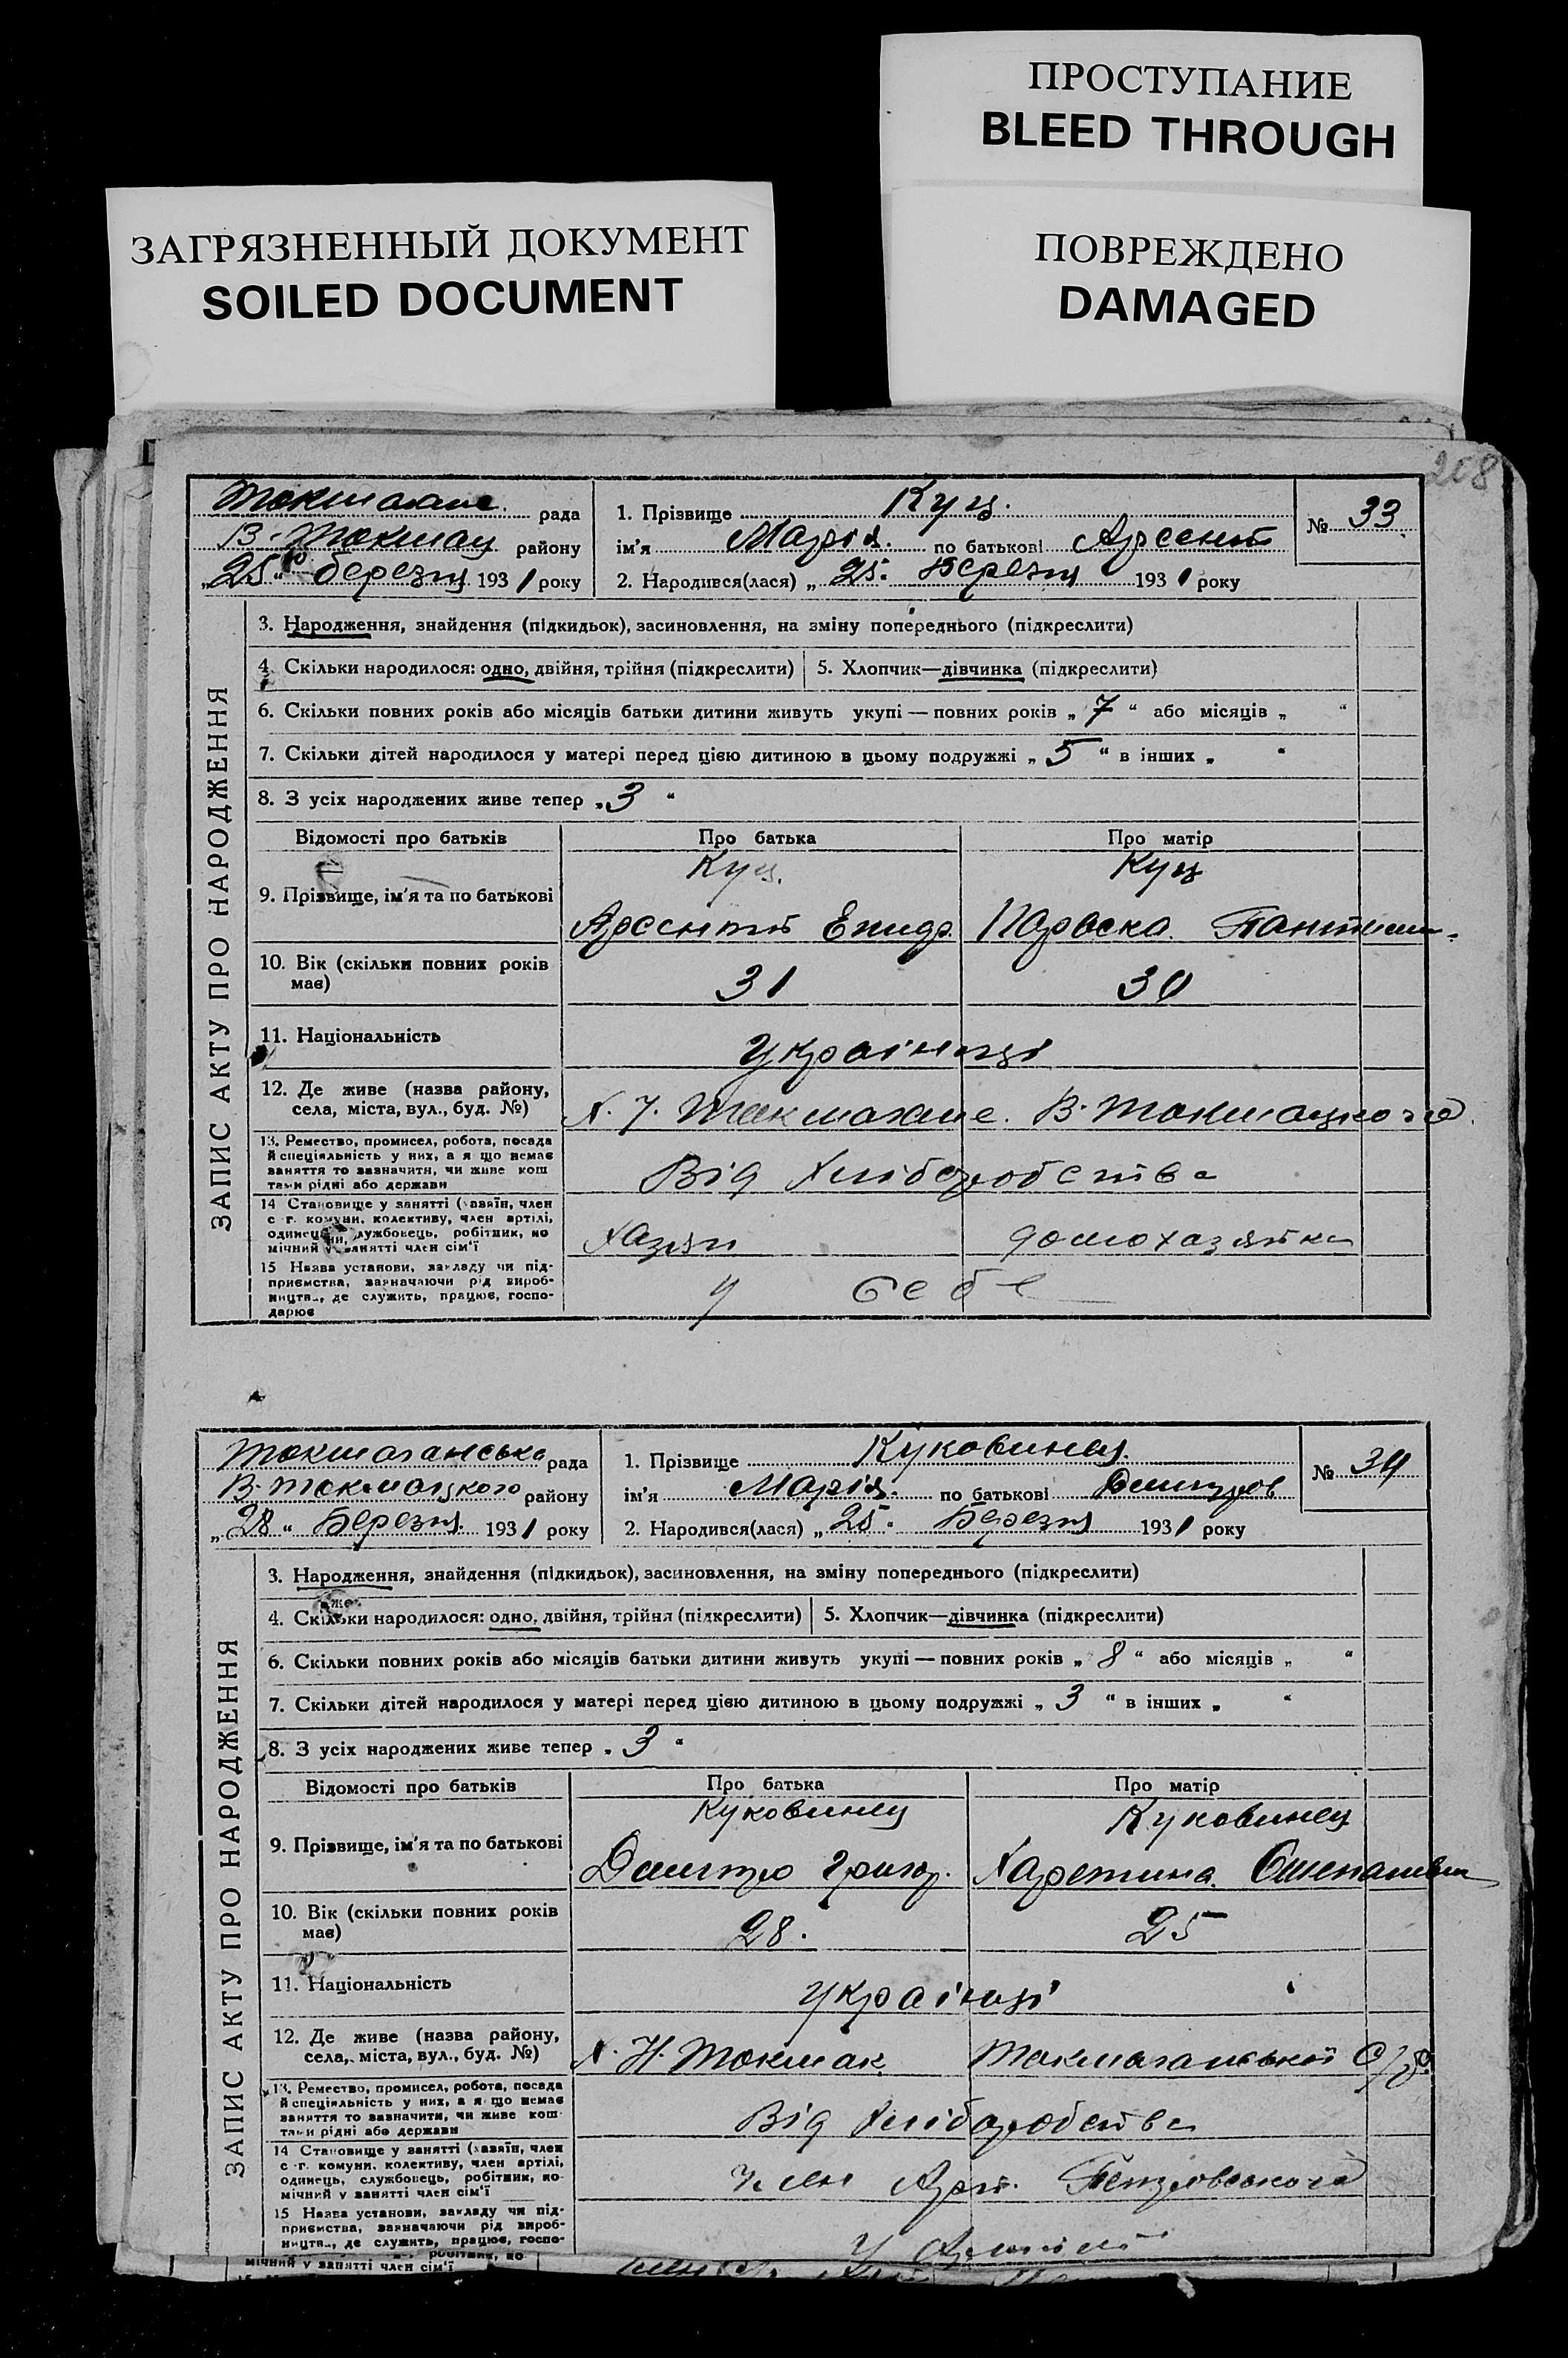 ПРОСТУПАНИЕ
BLEED THROUGH
ЗАГРЯЗНЕННЫЙ ДОКУМЕНТ
SOILED DOCUMENT
ПОВРЕЖДЕНО
DAMAGED
208
рада
В-Токмац району
„25“ березня 1931 року
1. Прізвище Куц.
ім'я Марія. по батькові Арсент
2. Народився(лася) „25“ Березня 1931 року
№ 33
ЗАПИС АКТУ ПРО НАРОДЖЕННЯ
3. Народження, знайдення (підкидьок), засиновлення, на зміну попереднього (підкреслити)
4. Скільки народилося: одно, двійня, трійня (підкреслити) 5. Хлопчик—дівчинка (підкреслити)
6. Скільки повних років або місяців батьки дитини живуть укупі — повних років „7“ або місяців „ “
7. Скільки дітей народилося у матері перед цією дитиною в цьому подружжі „5“ в інших „ “
8. З усіх народжених живе тепер „3“
Відомості про батьків Про батька Про матір
Куц. Куц
9. Прізвище, ім'я та по батькові
Арсентій Параска
10. Вік (скільки повних років має) 31 30
11. Національність українці
12. Де живе (назва району, села, міста, вул., буд. №)
В-Токмацкого
13. Ремество, промисел, робота, посада й спеціяльність у них, а я що немає заняття то зазначити, чи живе коштами рідні або держави
Від хліборобства
14 Становище у занятті (хазяїн, член с.-г. комуни, колективу, член артілі, одинець, службовець, робітник, помічний у занятті член сім'ї
Хазяін домохазяйка
15 Назва установи, закладу чи підприємства, зазначаючи рід виробництва, де служить, працює, господарює
у себе
Токмачанська рада
В-Токмацкого району
„28“ Березня 1931 року
1. Прізвище Куковинец.
ім'я Марія. по батькові Дмитров
2. Народився(лася) „25“ Березня 1931 року
№ 34
ЗАПИС АКТУ ПРО НАРОДЖЕННЯ
3. Народження, знайдення (підкидьок), засиновлення, на зміну попереднього (підкреслити)
4. Скільки народилося: одно, двійня, трійня (підкреслити) 5. Хлопчик—дівчинка (підкреслити)
6. Скільки повних років або місяців батьки дитини живуть укупі — повних років „8“ або місяців „ “
7. Скільки дітей народилося у матері перед цією дитиною в цьому подружжі „3“ в інших „ “
8. З усіх народжених живе тепер „3“
Відомості про батьків Про батька Про матір
Куковинец Куковинец
9. Прізвище, ім'я та по батькові
Дмитро Григор. Харетина
10. Вік (скільки повних років має) 28. 25
11. Національність українці
12. Де живе (назва району, села, міста, вул., буд. №)
Х. Н. Токмак Токмачанської С/р.
13. Ремество, промисел, робота, посада й спеціяльність у них, а я що немає заняття то зазначити, чи живе коштами рідні або держави
Від хліборобства
14 Становище у занятті (хазяїн, член с.-г. комуни, колективу, член артілі, одинець, службовець, робітник, помічний у занятті член сім'ї
Член Арт. Петровського
15 Назва установи, закладу чи підприємства, зазначаючи рід виробництва, де служить, працює, госпо-
У Артілі
мічний у занятті член сім'ї